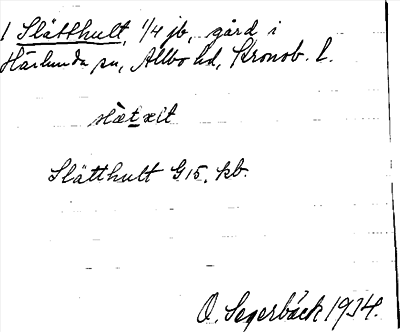 1 Slätthult, 1/4 jb, gård i
Härlunda sn, Allbo hd, Kronob. l.
Slätthult G 15, kb.
O. Segerbäck 1934.